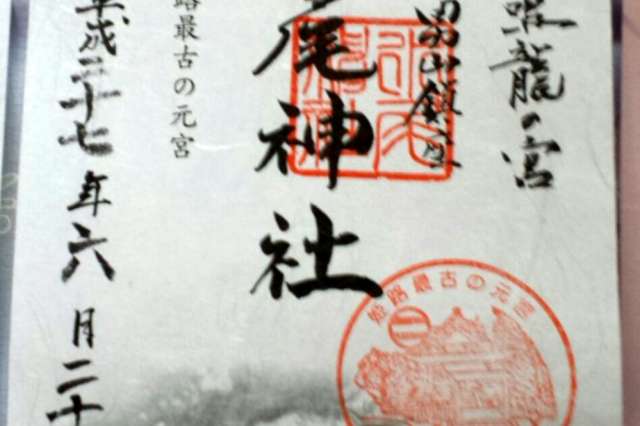 龍の宮
男山鎮座
尾神社
路最古の元宮
平成二十七年六月二十
姫路最古の元宮